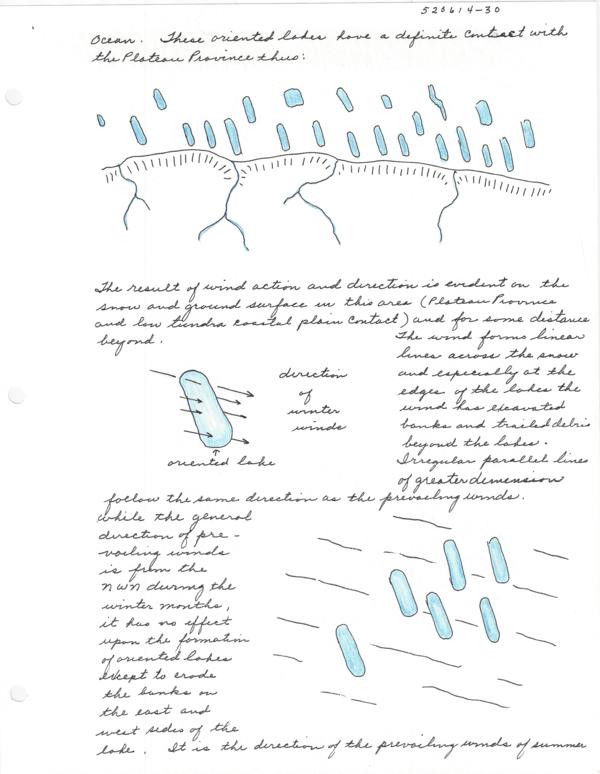 520614-30
Ocean. These oriented lakes have a definite contact with
the Plateau Province thus:
The result of wind action and direction is evident on the
snow and ground surface in this area (Plateau Province
and low tundra coastal plain contact) and for some distance
beyond.
The wind forms linear
lines across the snow
and especially at the
edges of the lakes the
wind has excavated
banks and trailed debris
beyond the lakes.
Irregular parallel lines
of greater dimension
direction
of
winter
winds
oriented lake
follow the same direction as the prevailing winds.
While the general
direction of pre-
vailing winds
is from the
NWN during the
winter months,
it has no effect
upon the formation
of oriented lakes
except to erode
the banks on
the east and
west sides of the
lake. It is the direction of the prevailing winds of summer